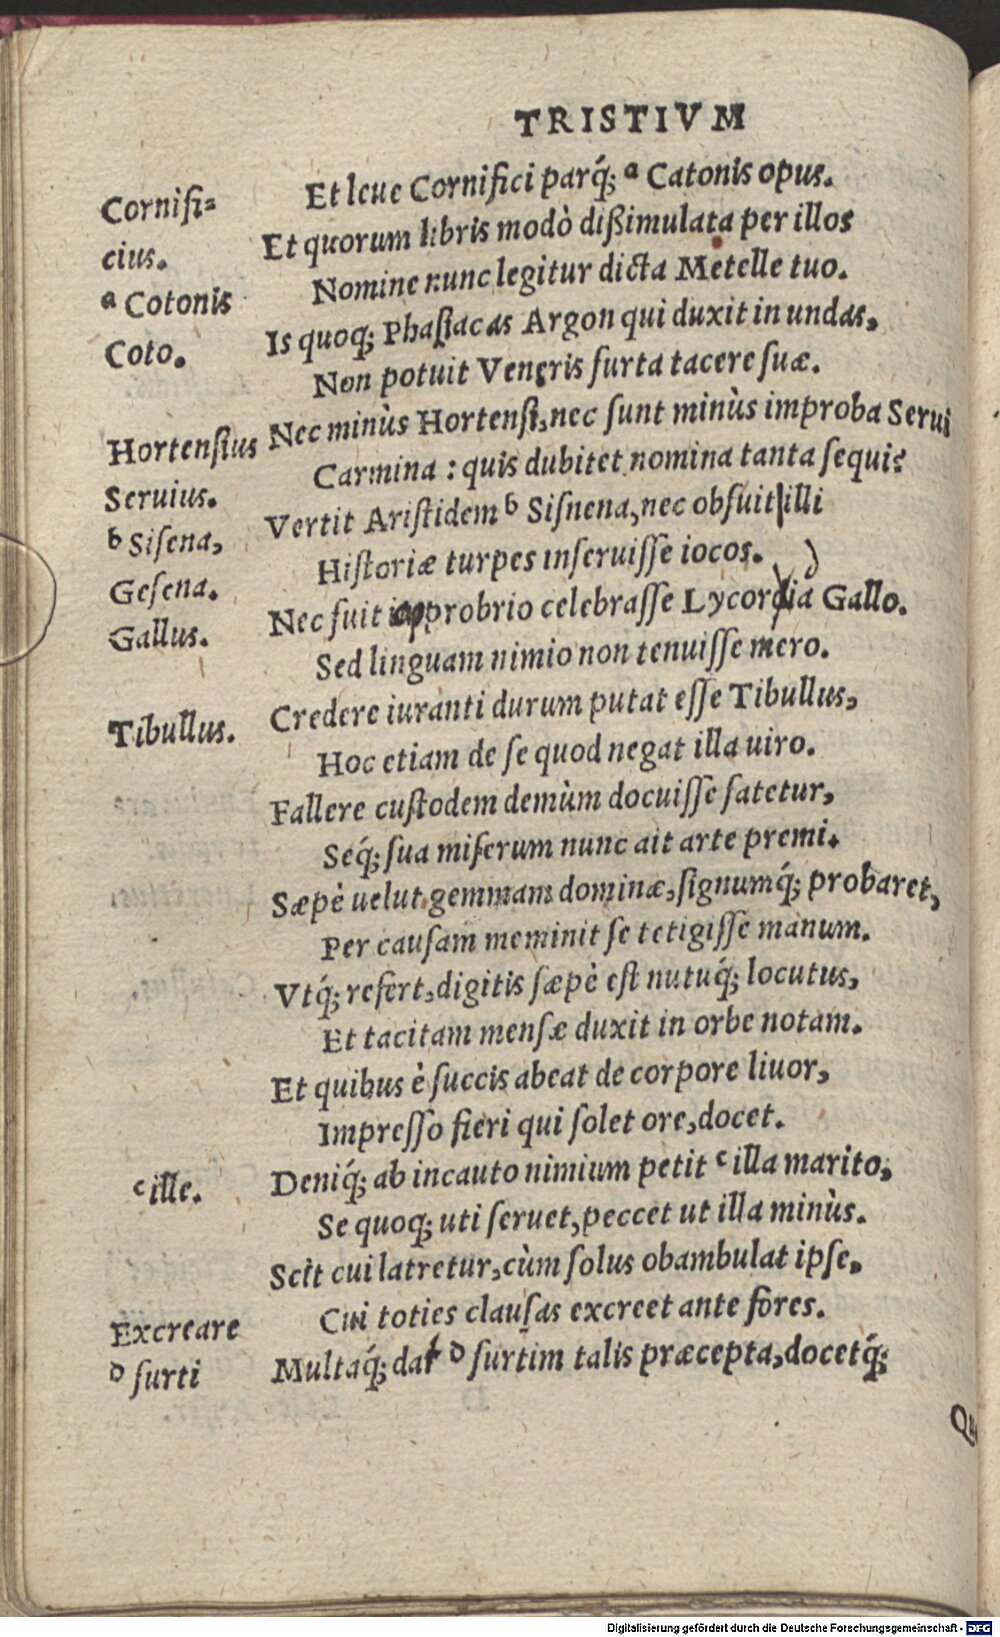 TRISTIVM
Et leue Cornifici parq́; ᵃ Catonis opus.
Cornifi=
cius.
ᵃ Cotonis
Coto.
Et quorum libris modò dißimulata per illos
Nomine nunc legitur dicta Metelle tuo.
Is quoq; Phaſiacas Argon qui duxit in undas,
Non potuit Veneris furta tacere ſuæ.
Hortenſius
Seruius.
ᵇ Siſena,
Geſena.
Gallus.
Nec minùs Hortenſi, nec ſunt minùs improba Serui
Carmina : quis dubitet nomina tanta ſequi?
Vertit Ariſtidem ᵇ Siſnena, nec obfuit illi
Hiſtoriæ turpes inſeruiſſe iocos.
Nec fuit opprobrio celebraſſe Lycordia Gallo.
Sed linguam nimio non tenuiſſe mero.
Tibullus.
Credere iuranti durum putat eſſe Tibullus,
Hoc etiam de ſe quod negat illa uiro.
Fallere cuſtodem demùm docuiſſe fatetur,
Seq́; ſua miſerum nunc ait arte premi.
Sæpè uelut gemmam dominæ, ſignumq́; probaret,
Per cauſam meminit ſe tetigiſſe manum.
Vtq́; refert, digitis ſæpè eſt nutuq́; locutus,
Et tacitam menſæ duxit in orbe notam.
Et quibus è ſuccis abeat de corpore liuor,
Impreſſo fieri qui ſolet ore, docet.
ᶜ ille.
Deniq́; ab incauto nimium petit ᶜ illa marito,
Se quoq; uti ſeruet, peccet ut illa minùs.
Scit cui latretur, cùm ſolus obambulat ipſe,
Cui toties clauſas excreet ante fores.
Excreare
ᴰ furti
Multaq́; dat ᴰ furtim talis præcepta, docetq́;
Digitalisierung gefördert durch die Deutsche Forschungsgemeinschaft - DFG